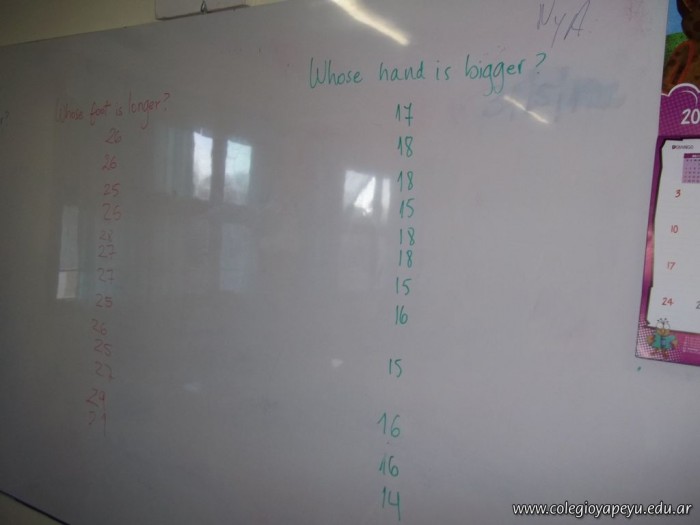 NyA
Whose foot is longer?
26
26
25
25
28
27
27
25
26
25
27
29
Whose hand is bigger?
17
18
18
15
18
18
15
16
15
16
16
14
20
3
10
17
24
www.colegioyapeyu.edu.ar